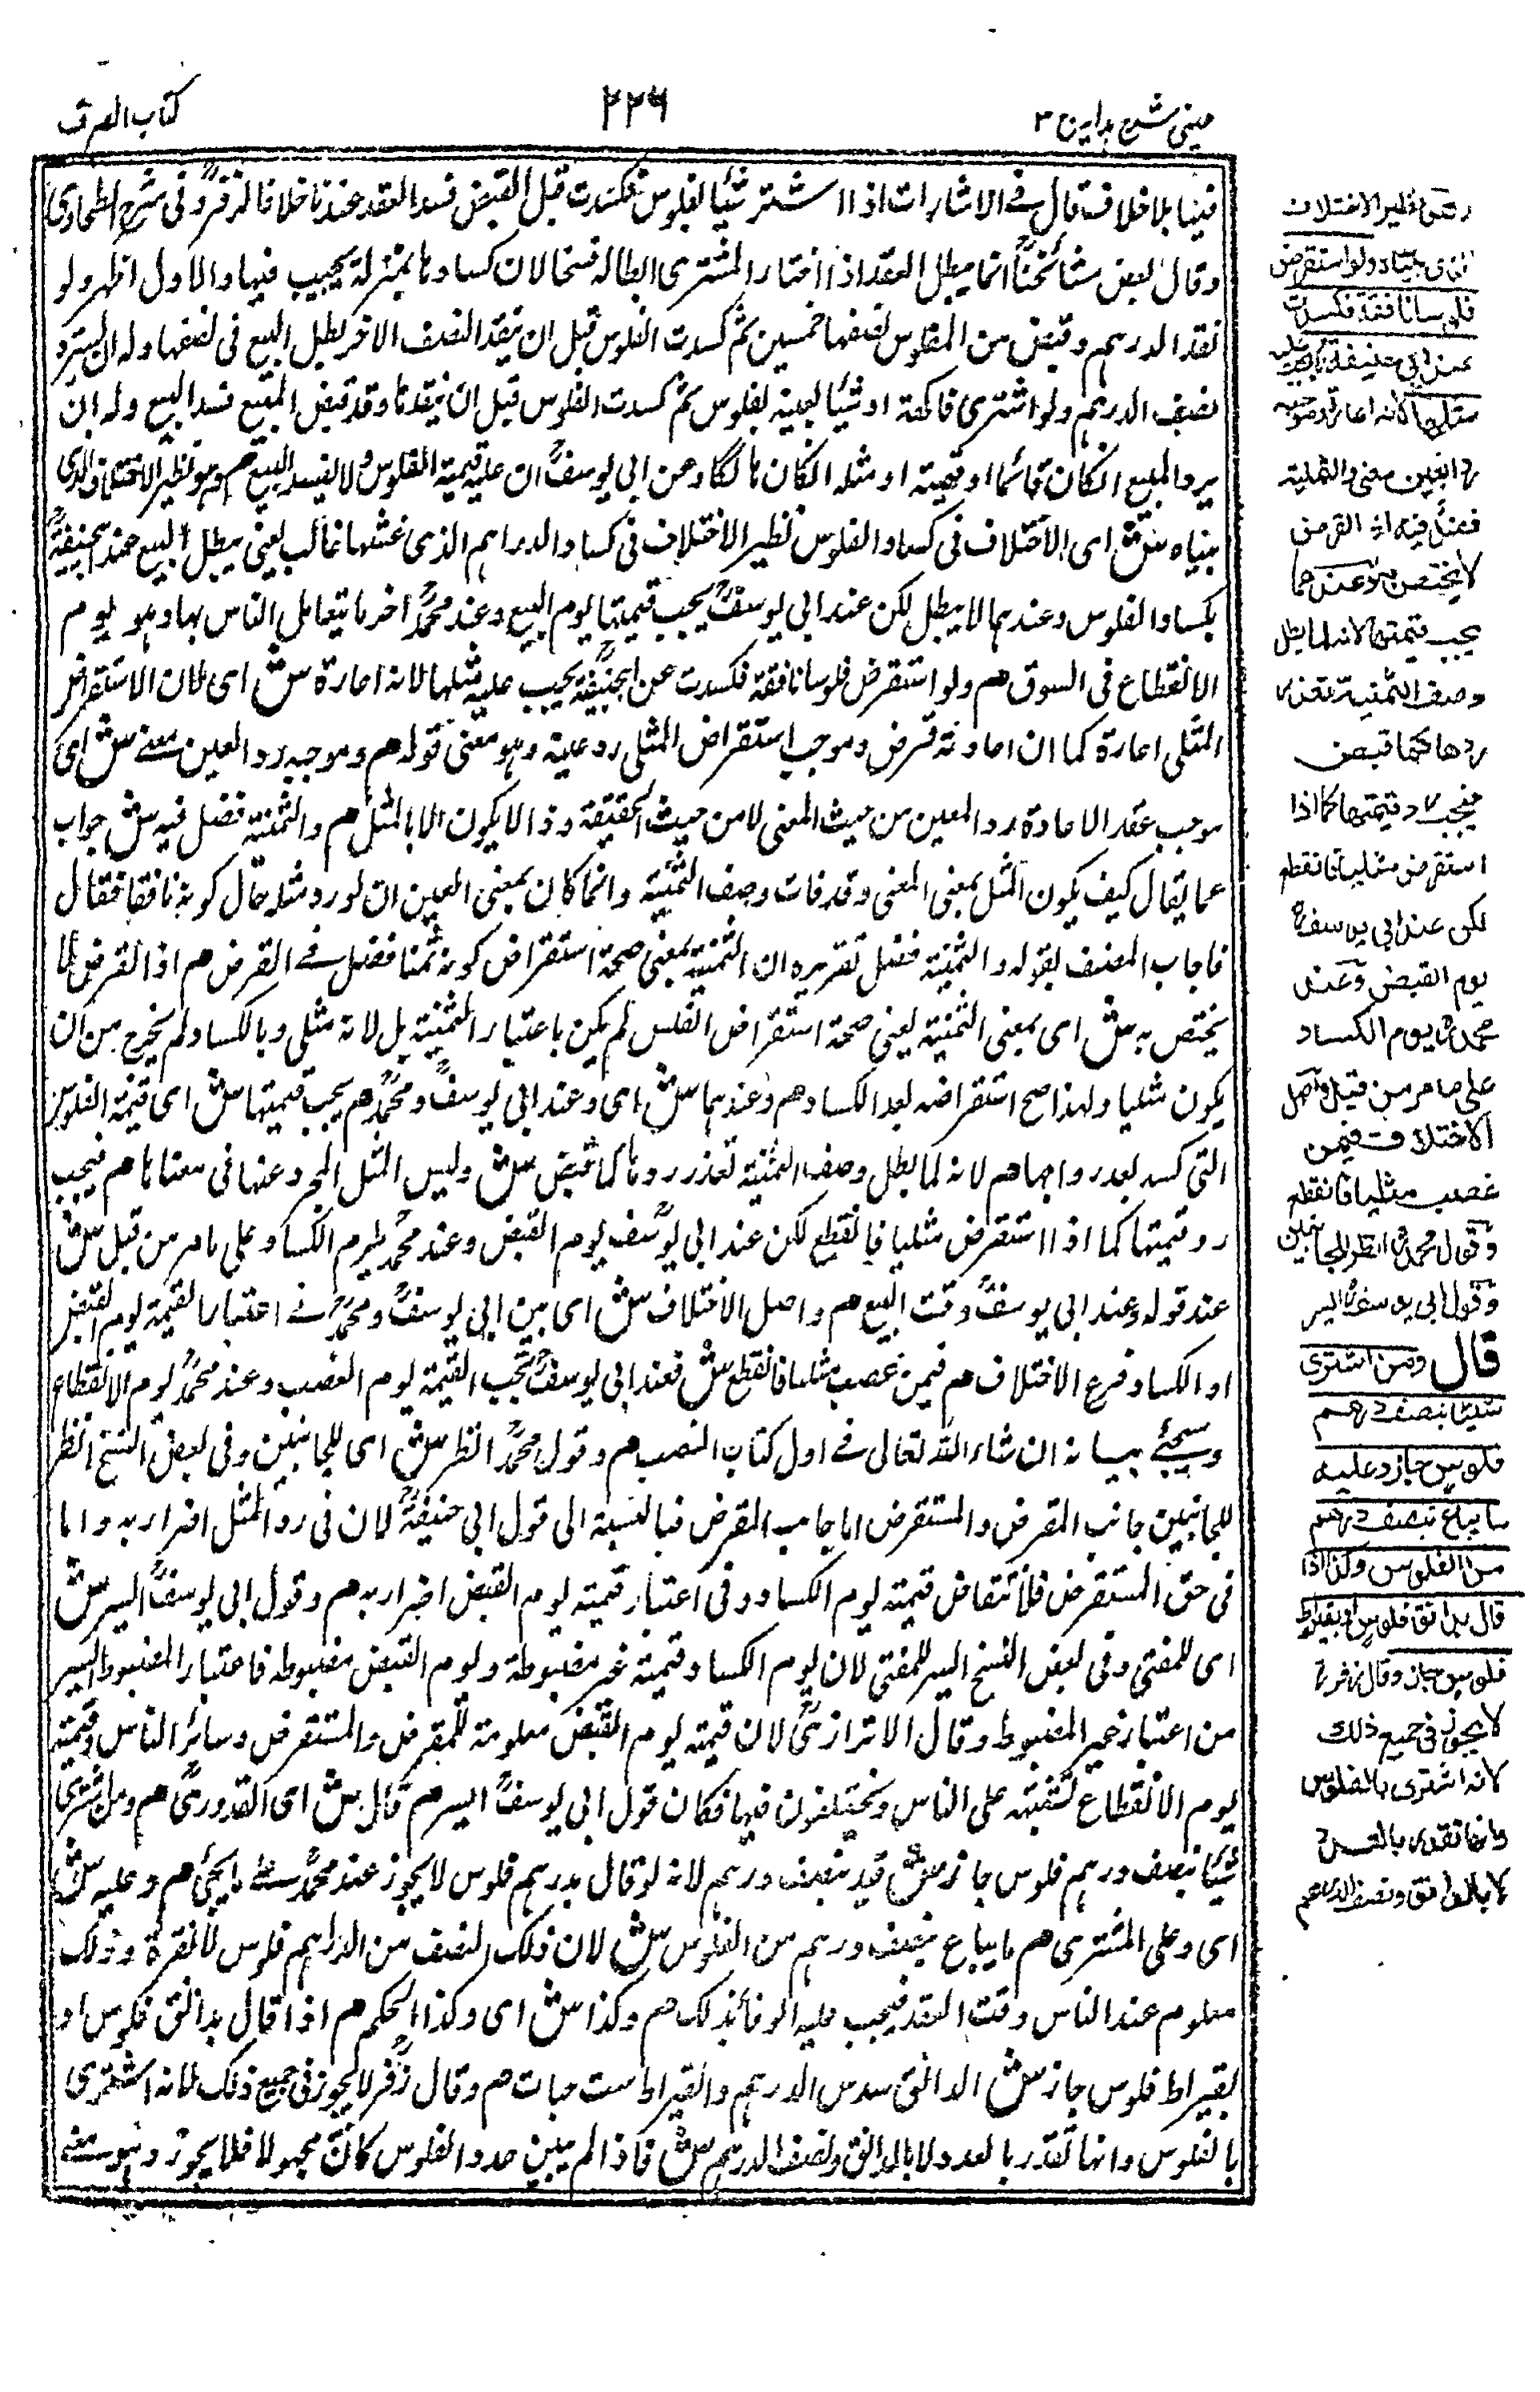 عینی شرح ہدایہ ج ٣
٢٢٦
كتاب الصرف
فينا بلا خلاف قال فے الاشارات اذا اشترے شيئا بفلوس فكسدت قبل القبض فسد العقد عندنا خلافا لزفرؒ وفى شرح الطحاوى
وقال بعض مشائخناؒ انما يبطل العقد اذا اختار المشترى ابطاله فسخا لان كسادها بمنزلة عيب فيها والاول اظهر ولو
نقد الدرهم وقبض من الفلوس نصفها خمسين ثم كسدت الفلوس قبل ان ينقد النصف الاخر بطل البيع فى نصفها وله ان يسترد
نصف الدرهم ولو اشترى فاكهة او شيئا بعينه بفلوس ثم كسدت الفلوس قبل ان ينقدها وقد قبض المبيع فسد البيع وله ان
يرد المبيع ان كان قائما او قيمته او مثله ان كان هالكا وعن ابى يوسفؒ ان عليه قيمة الفلوس ولا يفسد البيع هم وهو نظير الاختلاف الذى
بيناه ش اى الاختلاف فى كساد الفلوس نظير الاختلاف فى كساد الدراهم الذى غشها غالب يعنى يبطل البيع عند ابيحنيفةؒ
بكساد الفلوس وعندهما لا يبطل لكن عند ابى يوسفؒ يجب قيمتها يوم البيع وعند محمدؒ اخر ما يتعامل الناس بها وهو يوم
الانقطاع فى السوق هم ولو استقرض فلوسا نافقة فكسدت عن ابيحنيفةؒ يجب عليه مثلها لانه اعارة ش اى لان الاستقراض
المثلى اعارة كما ان اعارته قرض وموجب استقراض المثلى رد عينه وهو معنى قوله هم وموجبه رد العين معنے ش اى
موجب عقد الاعارة رد العين من حيث المعنى لا من حيث الحقيقة وذا لا يكون الا بالمثل هم والثمنية فضل فيه ش جواب
عما يقال كيف يكون المثل بمعنى المعنى وقد فات وصف الثمنية وانما كان بمعنى العين ان لو رد مثله حال كونه نافقا فقال
فاجاب المصنف بقوله والثمنية فضل تقريره ان الثمنية بمعنى صحة استقراض كونه ثمنا فضل فے القرض هم اذ القرض لا
يختص به ش اى بمعنى الثمنية يعنى صحة استقراض الفلس لم يكن باعتبار الثمنية بل لانه مثلى وبالكساد لم يخرج من ان
يكون مثليا ولهذا صح استقراضه بعد الكساد هم وعندهما ش اى وعند ابى يوسفؒ ومحمدؒ هم يجب قيمتها ش اى قيمة الفلوس
التى كسد بعد رواجها هم لانه لما بطل وصف الثمنية تعذر ردها كما قبض ش وليس المثل المجرد عنها فى معناها هم فيجب
رد قيمتها كما اذا استقرض مثليا فانقطع لكن عند ابى يوسفؒ يوم القبض وعند محمدؒ يوم الكساد على ما مر من قبل ش
عند قوله وعند ابى يوسفؒ وقت البيع هم واصل الاختلاف ش اى بين ابى يوسفؒ ومحمدؒ فے اعتبار القيمة يوم القبض
او الكساد فرع الاختلاف هم فيمن غصب مثليا فانقطع ش فعند ابى يوسفؒ تجب القيمة يوم الغصب وعند محمدؒ يوم الانقطاع
وسيجئے بيانه ان شاء الله تعالى فے اول كتاب الغصب هم وقول محمدؒ انظر ش اى للجانبين وفى بعض النسخ انظر
للجانبين جانب المقرض والمستقرض اما جانب المقرض فبالنسبة الى قول ابى حنيفةؒ لان فى رد المثل اضرار به واما
فى حق المستقرض فلانتقاض قيمته يوم الكساد وفى اعتبار قيمته يوم القبض اضرار به هم وقول ابى يوسفؒ ايسر ش
اى للمفتى وفى بعض النسخ ايسر للمفتى لان يوم الكساد قيمته غير مضبوطة ويوم القبض مضبوطه فاعتبار المضبوط ايسر
من اعتبار غير المضبوط وقال الاترازىؒ لان قيمته يوم القبض معلومة للمقرض والمستقرض وسائر الناس وقيمته
يوم الانقطاع تشتبه على الناس ويختلفون فيها فكان قول ابى يوسفؒ ايسر هم قال ش اى القدورىؒ هم ومن اشترى
شيئا بنصف درهم فلوس جاز ش قيد بنصف درهم لانه لو قال بدرهم فلوس لا يجوز عند محمدؒ علے ما يجئ هم وعليه ش
اى وعلى المشترى هم ما يباع بنصف درهم من الفلوس ش لان ذلك النصف من الدراهم فلوس لا نقرة وذلك
معلوم عند الناس وقت العقد فيجب عليه الوفاء بذلك هم وكذا ش اى وكذا الحكم هم اذا قال بدانق فلوس او
بقيراط فلوس جاز ش الدانق سدس الدرهم والقيراط ست حبات هم وقال زفرؒ لا يجوز فى جميع ذلك لانه اشترى
بالفلوس وانها تقدر بالعدد لا بالدانق ونصف الدرهم ش فاذا لم يبين عدد الفلوس كان مجهولا فلا يجوز وهو معنے
نظير الاختلاف
الذى بيناه ولو استقرض
فلوسا نافقة فكسدت
عند ابى حنيفة يجب عليه
مثلها لانه اعارة وموجبه
رد العين معنى والثمنية
فضل فيه اذ القرض
لا يختص به وعندهما
يجب قيمتها لانه لما بطل
وصف الثمنية تعذر
ردها كما قبض
فيجب رد قيمتها كما اذا
استقرض مثليا فانقطع
لكن عند ابى يوسفؒ
يوم القبض وعند
محمدؒ يوم الكساد
على ما مر من قبل واصل
الاختلاف فيمن
غصب مثليا فانقطع
وقول محمدؒ انظر للجانبين
وقول ابى يوسفؒ ايسر
قال ومن اشترى
شيئا بنصف درهم
فلوس جاز وعليه
ما يباع بنصف درهم
من الفلوس وكذا اذا
قال بدانق فلوس او بقيراط
فلوس جاز وقال زفرؒ
لا يجوز فى جميع ذلك
لانه اشترى بالفلوس
وانها تقدر بالعدد
لا بالدانق ونصف الدرهم